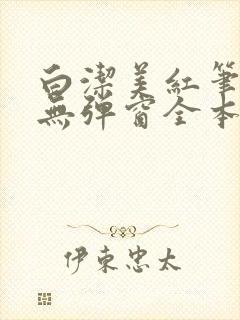 白潔美紅筆
無彈窗全本
伊東忠太